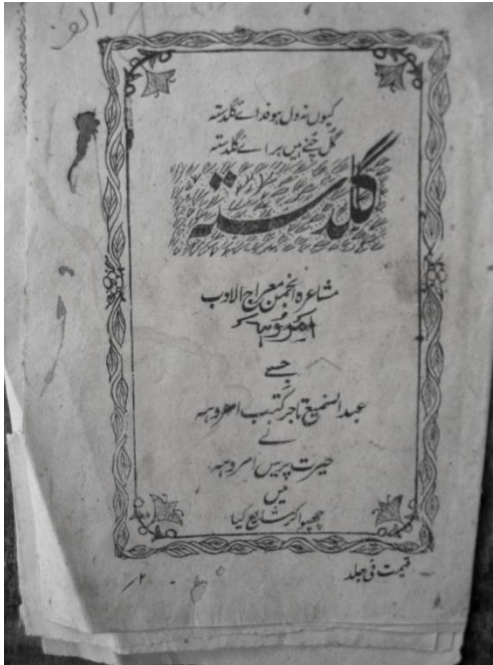 الف
کیوں نہ دل ہو فدائے گلدستہ
گل چنے ہیں برائے گلدستہ
گلدستہ
مشاعرہ انجمن معراج الادب
امروہہ
جسے
عبدالسمیع تاجر کتب امروہہ
نے
حیرت پریس امروہہ
میں
چھپوا کر شایع کیا
قیمت فی جلد
۲؍